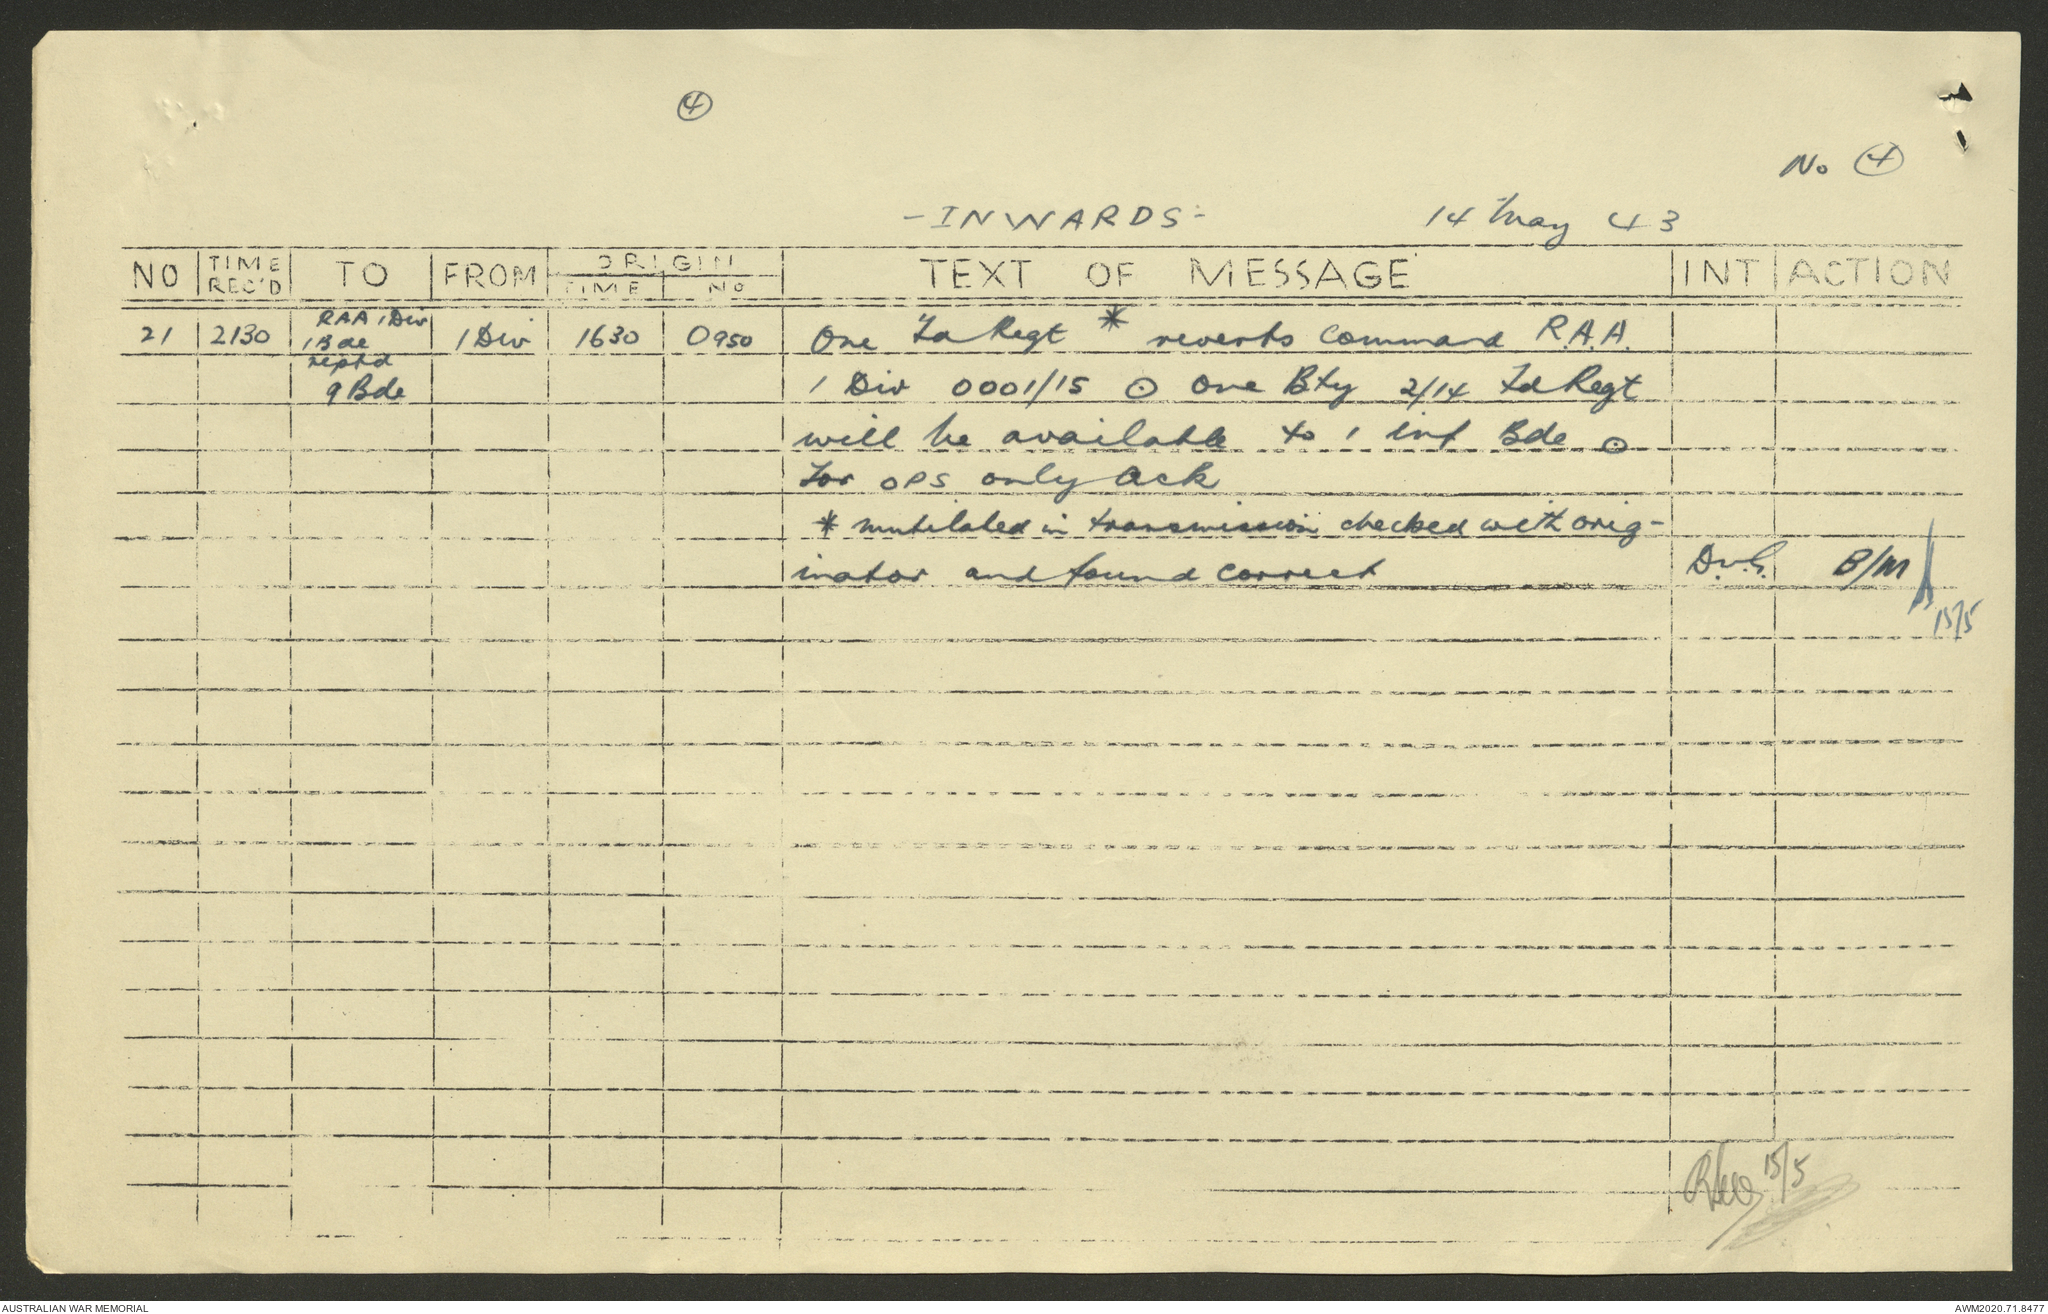 ④
No ④
- INWARDS - 14 May 43
NO TIME REC'D TO FROM ORIGIN TIME NO TEXT OF MESSAGE INT ACTION
21 2130 RAA 1 Div 1 Bde reptd 9 Bde 1 Div 1630 0950 One Fd Regt * reverts command R.A.A.
1 Div 0001/15 ⊙ One Bty 2/14 Fd Regt
will be available to 1 inf Bde ⊙
For OPS only Ack
* mutilated in transmission checked with orig-
inator and found correct D.v.G. B/M
15/5
15/5
AUSTRALIAN WAR MEMORIAL AWM2020.71.8477